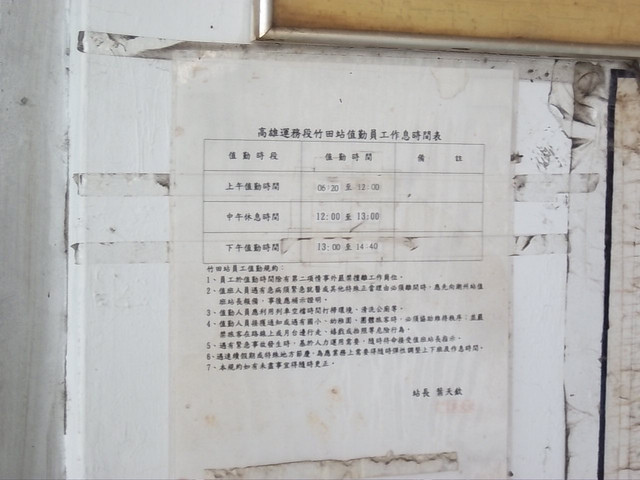 高雄運務段竹田站值勤員工作息時間表
值勤時段 值勤時間 備 註
上午值勤時間 06:20 至 12:00
中午休息時間 12:00 至 13:00
下午值勤時間 13:00 至 14:40
竹田站員工值勤規約：
1、員工於值勤時間除有第二項情事外嚴禁擅離工作崗位。
2、值班人員遇有急病須緊急就醫或其他特殊正當理由必須離開時，應先向潮州站值
班站長報備，事後應補示證明。
3、值勤人員應利用列車空檔時間打掃環境、清洗公廁等。
4、值勤人員接獲通知或遇有國小、幼稚園、團體旅客時，必須協助維持秩序；並嚴
禁旅客在路線上或月台邊行走、嬉戲或拍照等危險行為。
5、遇有緊急事故發生時，基於人力運用需要，隨時待命接受值班站長指示。
6、遇連續假期或特殊地方節慶，為應業務上需要得隨時彈性調整上下班及作息時間。
7、本規約如有未盡事宜得隨時更正。
站長 葉天欽